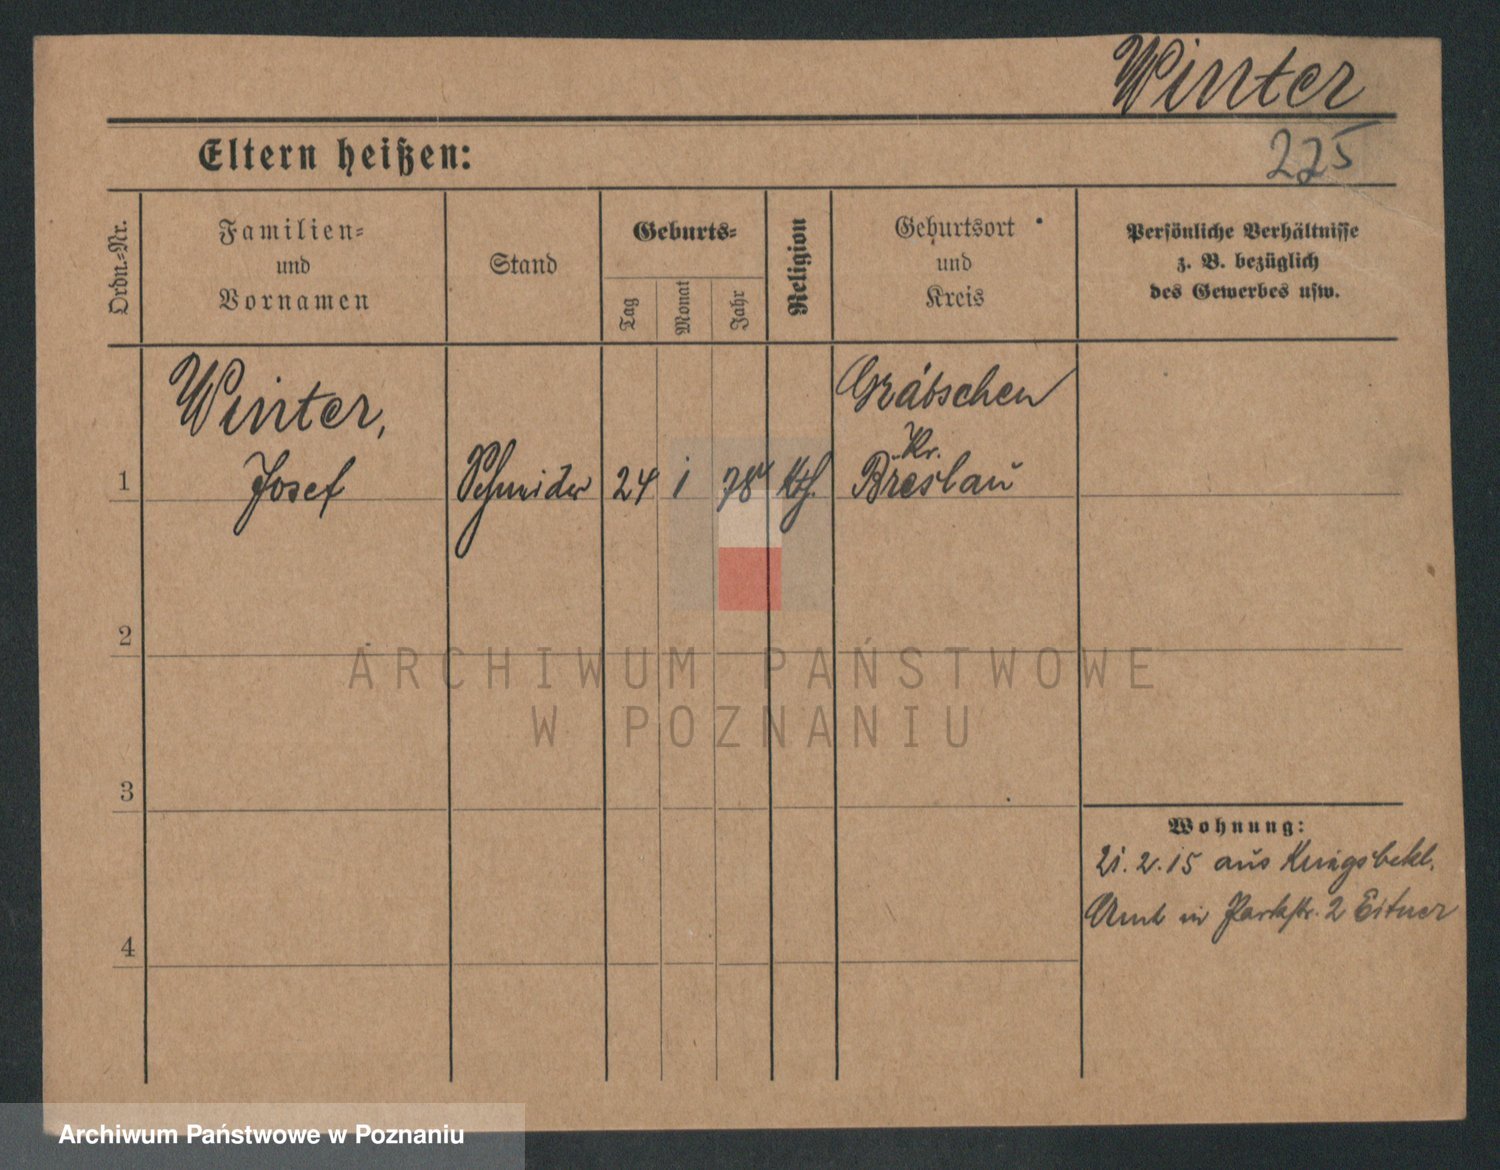 Winter
225
Eltern heißen:
Ordn.-Nr.
Familien-
und
Vornamen
Stand
Geburts-
Tag
Monat
Jahr
Religion
Geburtsort
und
Kreis
Persönliche Verhältnisse
z. B. bezüglich
des Gewerbes usw.
Winter,
Josef
Schneider
24
1
78
Kth.
Gräbschen
Kr.
Breslau
1
2
3
4
Wohnung:
21.2.15 aus
Amt in Parkstr. 2 Eitner
ARCHIWUM PAŃSTWOWE
W POZNANIU
Archiwum Państwowe w Poznaniu